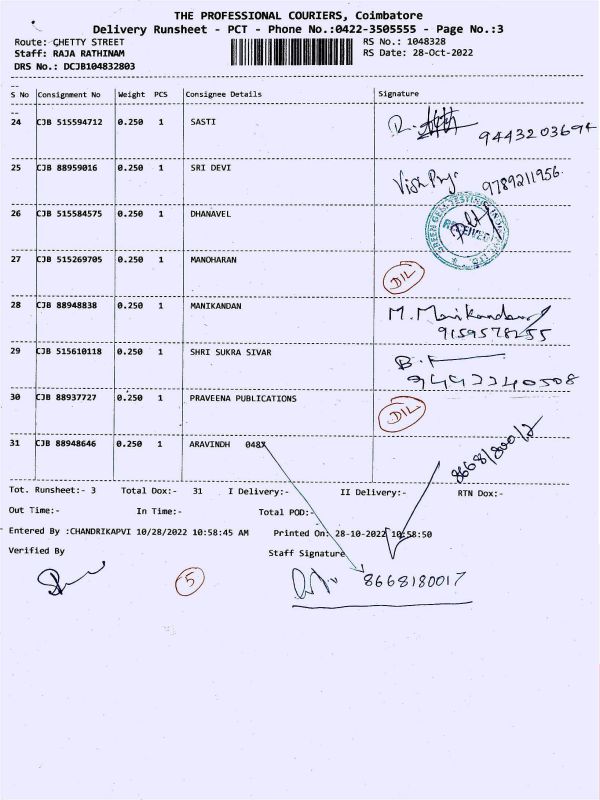 THE PROFESSIONAL COURIERS, Coimbatore
Delivery Runsheet - PCT - Phone No.:0422-3505555 - Page No.:3
Route: CHETTY STREET
RS No.: 1048328
Staff: RAJA RATHINAM
RS Date: 28-Oct-2022
DRS No.: DCJB104832803
S No Consignment No Weight PCS Consignee Details Signature
24 CJB 515594712 0.250 1 SASTI
9443203694
25 CJB 88959016 0.250 1 SRI DEVI
9789211956
26 CJB 515584575 0.250 1 DHANAVEL
RECEIVED
27 CJB 515269705 0.250 1 MANOHARAN
DIL
28 CJB 88948838 0.250 1 MANIKANDAN
M. Manikandan
9159578255
29 CJB 515610118 0.250 1 SHRI SUKRA SIVAR
30 CJB 88937727 0.250 1 PRAVEENA PUBLICATIONS
DIL
31 CJB 88948646 0.250 1 ARAVINDH 048X
Tot. Runsheet:- 3 Total Dox:- 31 I Delivery:- II Delivery:- RTN Dox:-
Out Time:- In Time:- Total POD:-
Entered By :CHANDRIKAPVI 10/28/2022 10:58:45 AM Printed On: 28-10-2022 10:58:50
Verified By
Staff Signature
5
8668180017